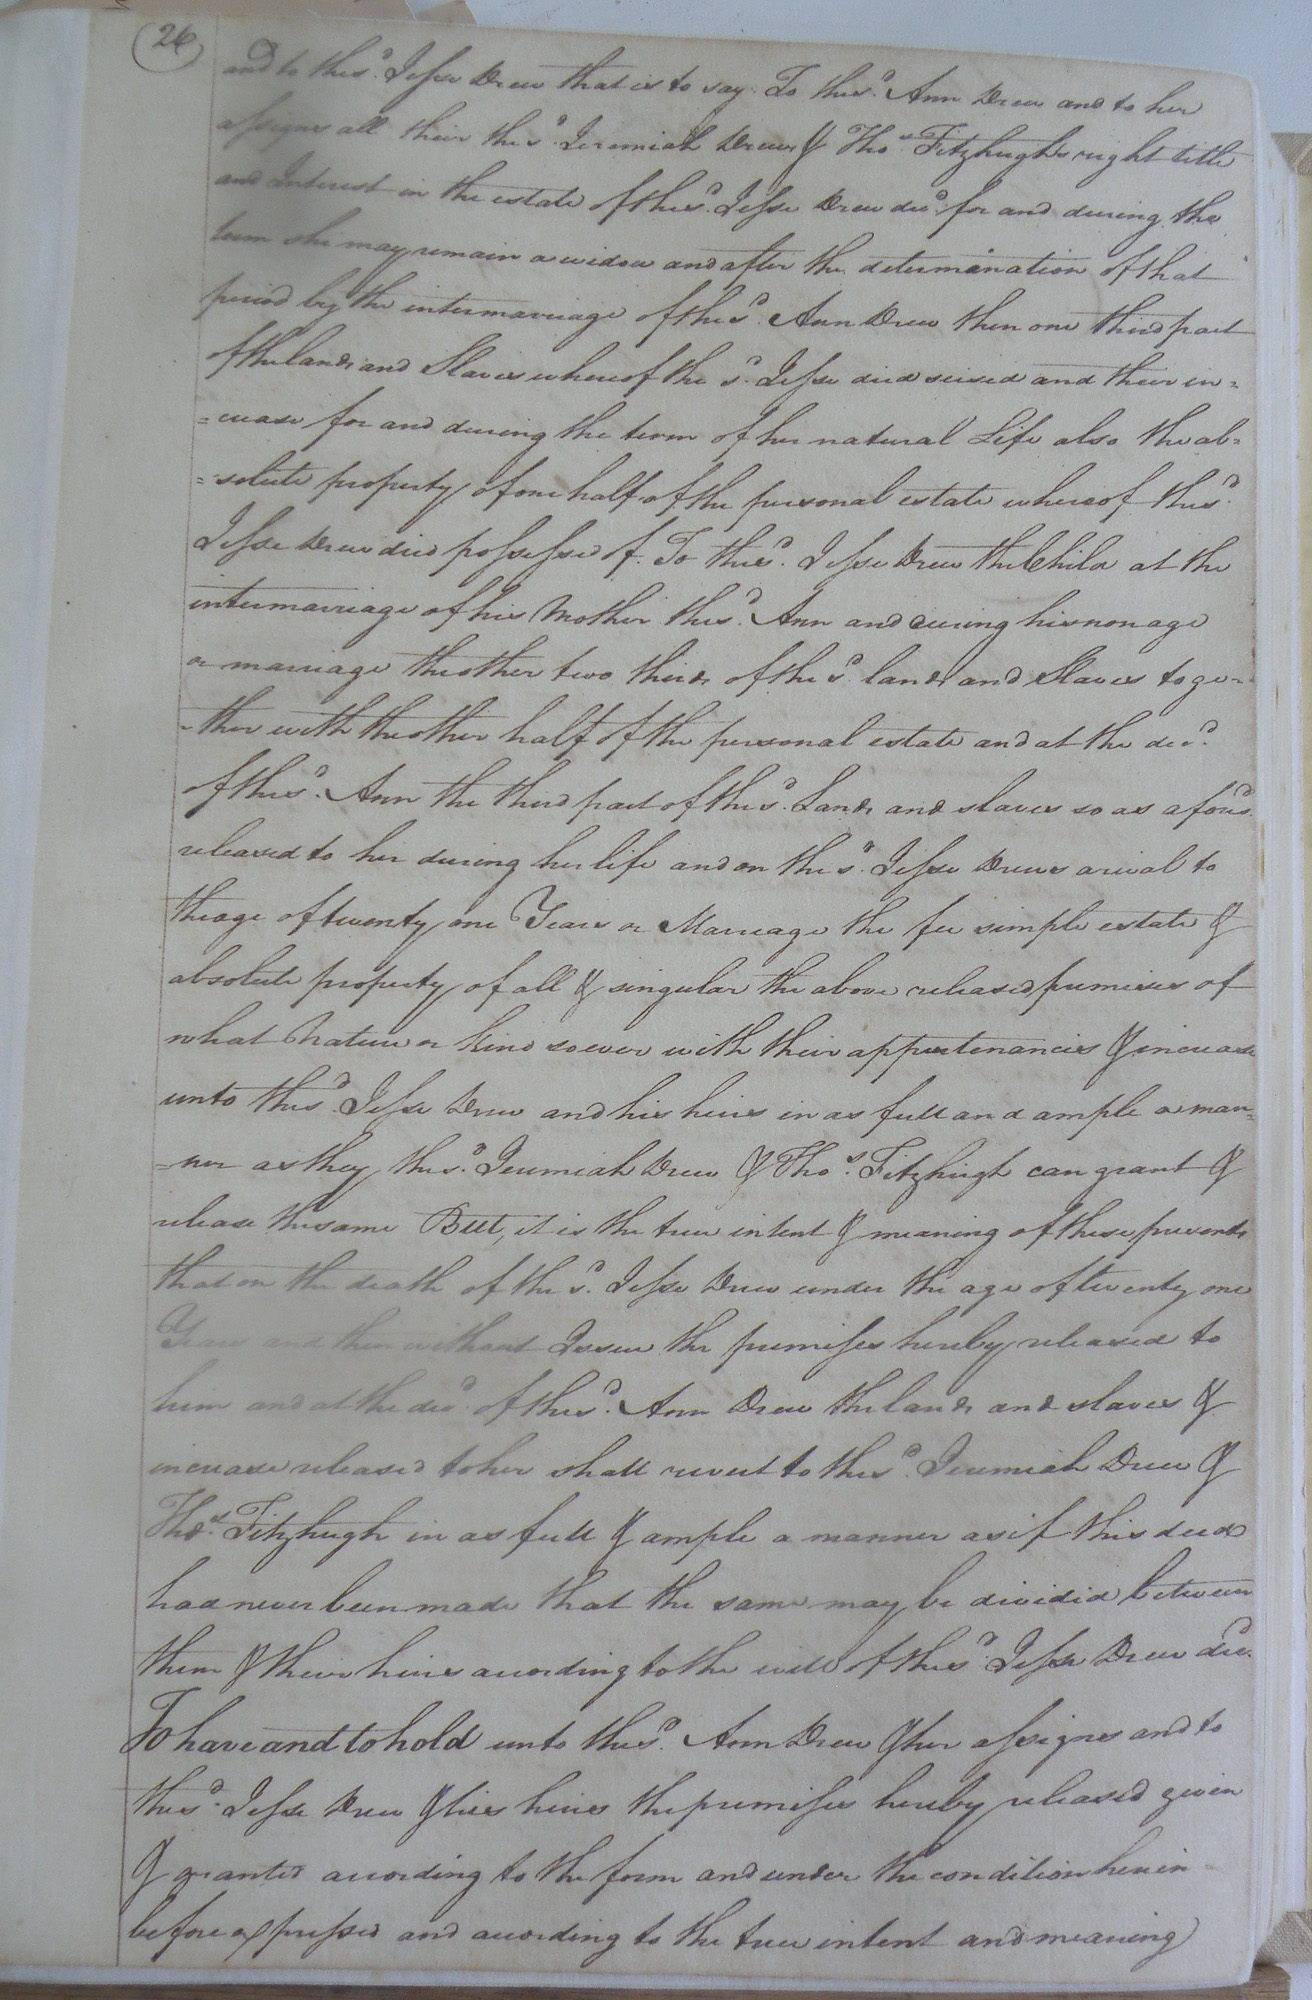 26
and to the sd. Jesse Drew that is to say To the sd. Ann Drew and to her
assigns all their the sd. Jeremiah Drew & Thos. Fitzhugh's right title
and Interest in the estate of the sd. Jesse Drew decd. for and during the
term she may remain a widow and after the determination of that
period by the intermarriage of the sd. Ann Drew then one third part
of the lands and Slaves whereof the sd. Jesse died seised and their in=
=crease for and during the term of her natural Life also the ab=
=solute property of one half of the personal estate whereof the sd.
Jesse Drew died possessed of. To the sd. Jesse Drew the Child at the
intermarriage of his Mother the sd. Ann and during his nonage
or marriage the other two thirds of the sd. lands and Slaves toge=
=ther with the other half of the personal estate and at the decd.
of the sd. Ann the third part of the sd. Lands and slaves so as aforesd.
released to her during her life and on the sd. Jesse Drews arival to
the age of twenty one Years or Marriage the fee simple estate &
absolute property of all & singular the above released premises of
what Nature or kind soever with their appurtenancies & increase
unto the sd. Jesse Drew and his heirs in as full and ample a man=
=ner as they the sd. Jeremiah Drew & Thos. Fitzhugh can grant &
release the same But, it is the true intent & meaning of these presents
that on the death of the sd. Jesse Drew under the age of twenty one
Years and then without Issue the premises hereby released to
him and at the decd. of the sd. Ann Drew the lands and slaves &
increase released to her shall revert to the sd. Jeremiah Drew &
Thos. Fitzhugh in as full & ample a manner as if this deed
had never been made that the same may be divided between
them & their heirs according to the will of the sd. Jesse Drew decd.
To have and to hold unto the sd. Ann Drew & her assigns and to
the sd. Jesse Drew & his heirs the premises hereby released given
& granted according to the form and under the condition herein=
before expressed and according to the true intent and meaning